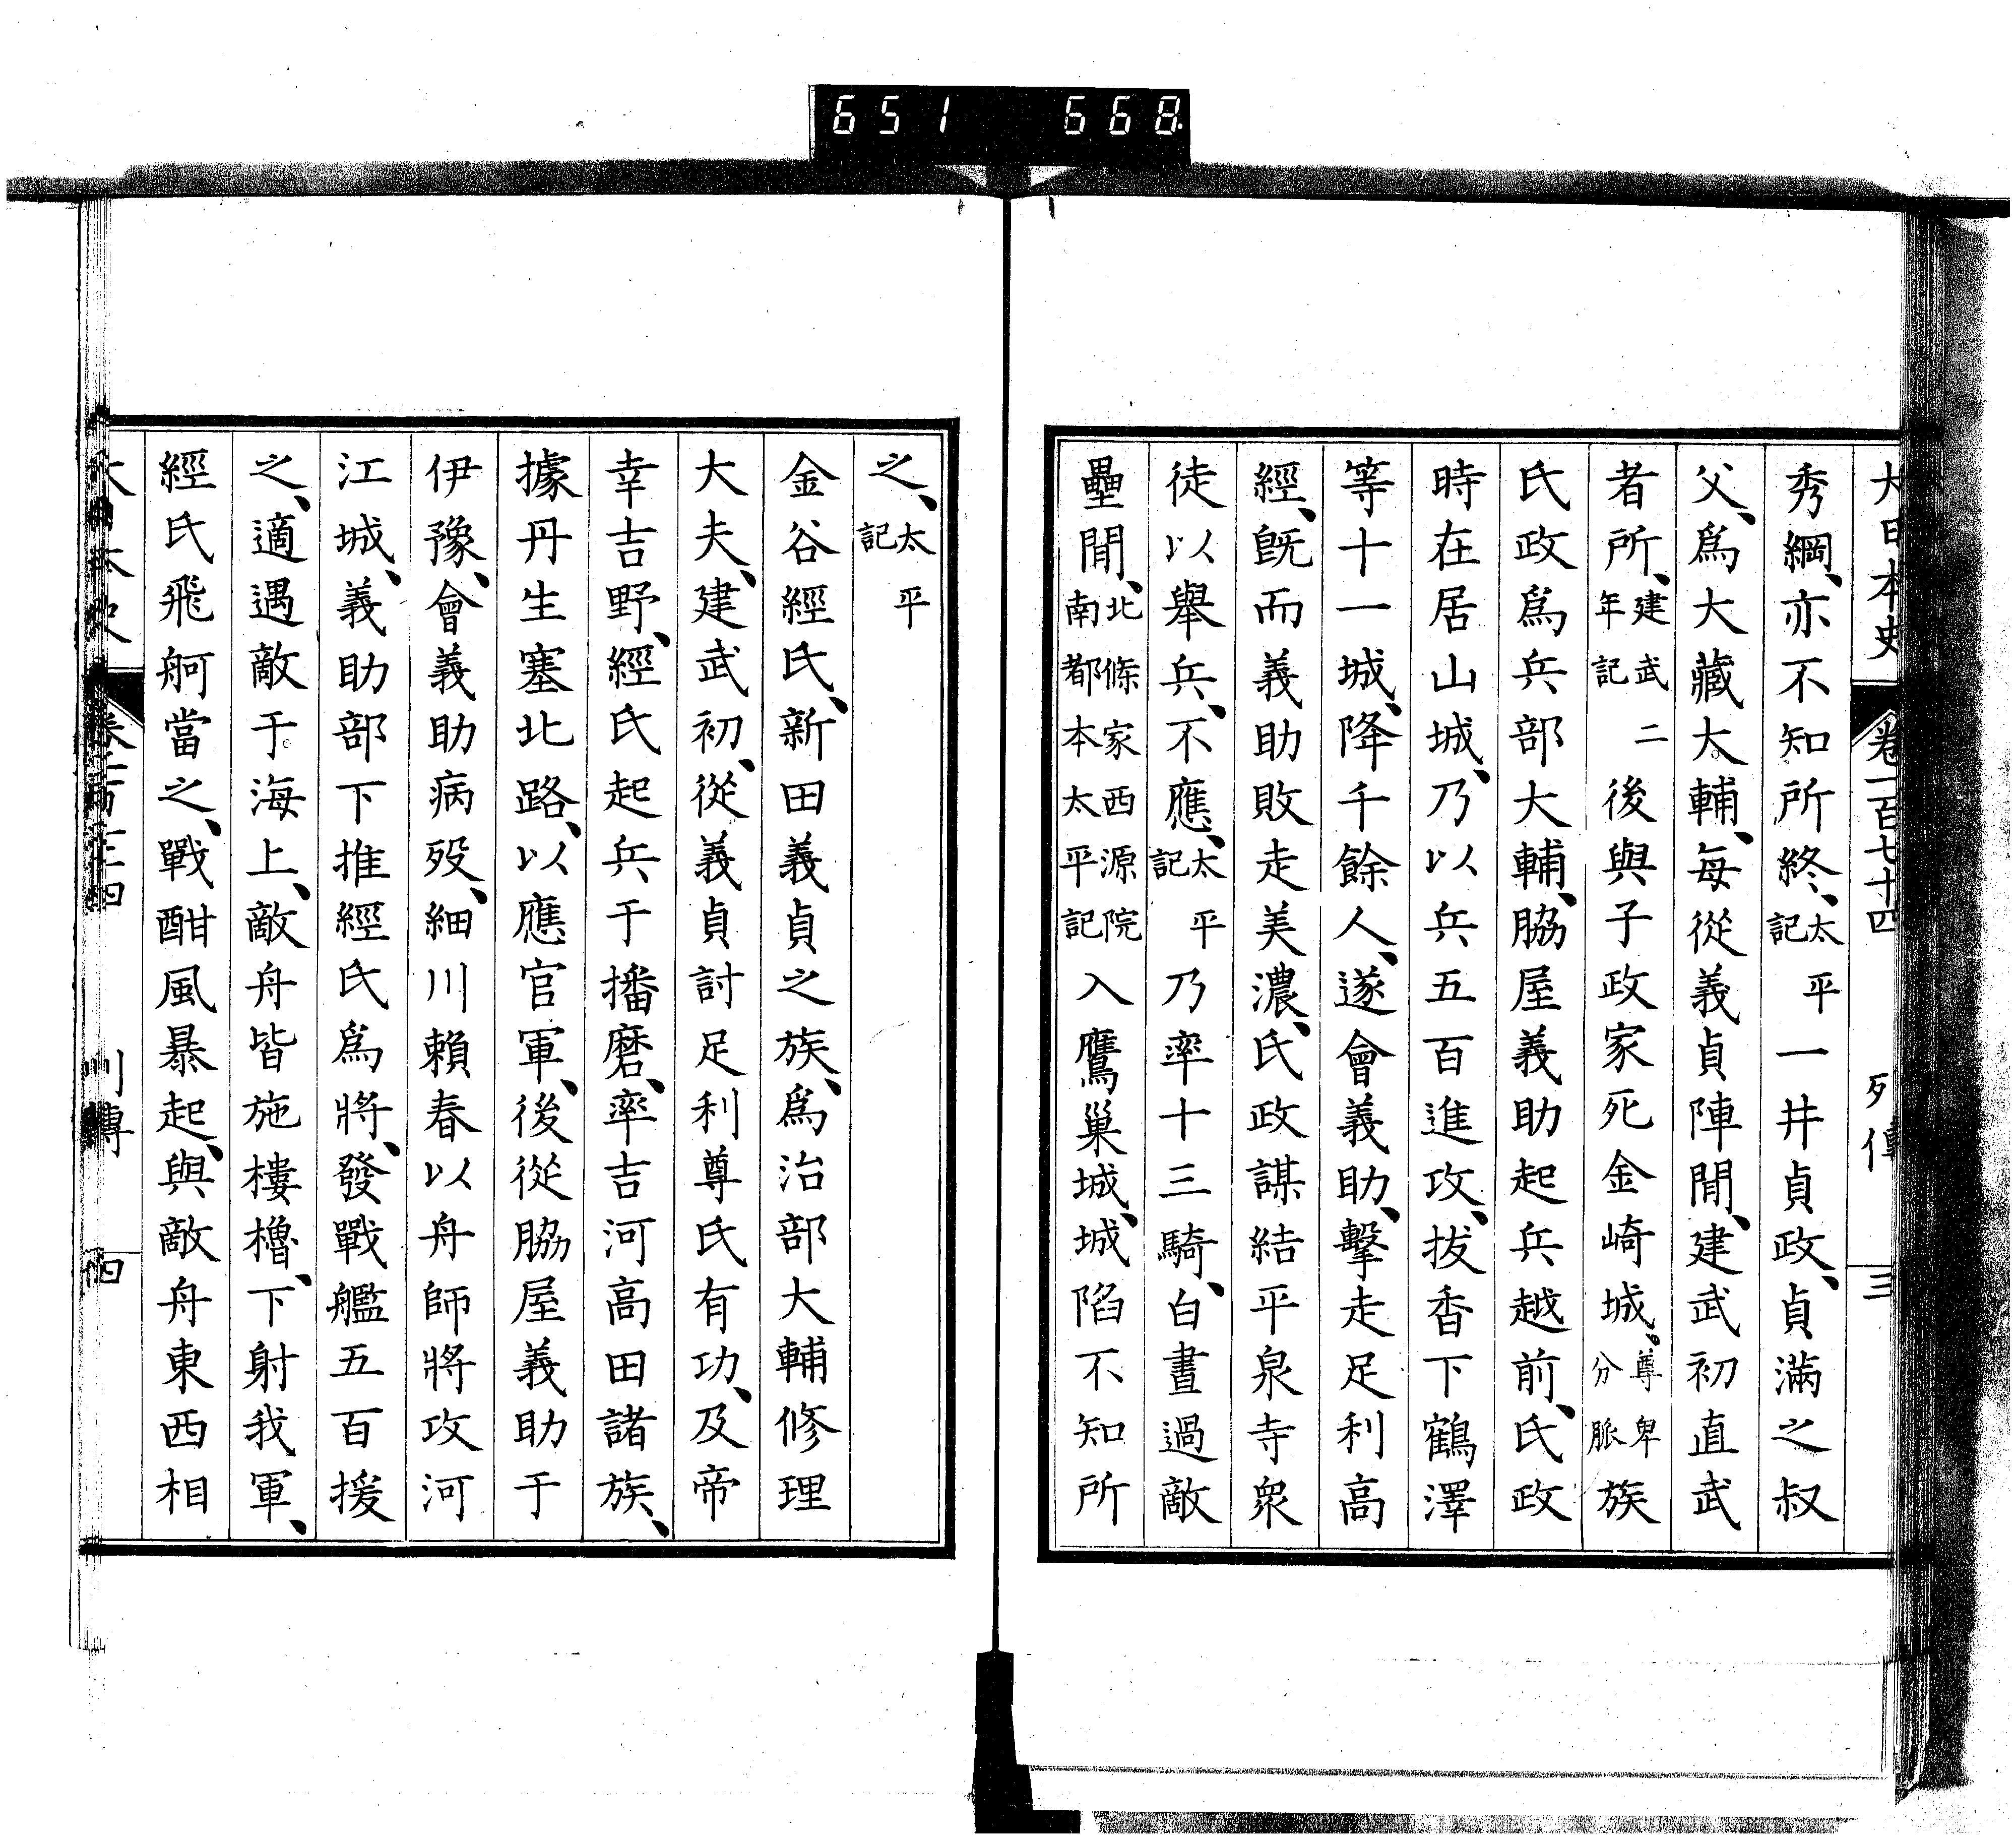 651 668
大日本史 卷一百七十四 列傳 三
秀綱、亦不知所終、太平記一井貞政、貞滿之叔
父、爲大藏大輔、每從義貞陣閒、建武初直武
者所、建武二年記後與子政家死金崎城、尊卑分脈族
氏政爲兵部大輔、脇屋義助起兵越前、氏政
時在居山城、乃以兵五百進攻、拔香下鶴澤
等十一城、降千餘人、遂會義助、擊走足利高
經、旣而義助敗走美濃、氏政謀結平泉寺衆
徒以擧兵、不應、太平記乃率十三騎、白晝過敵
壘閒、北條家西源院南都本太平記入鷹巢城、城陷不知所
之、太平記
金谷經氏、新田義貞之族、爲治部大輔修理
大夫、建武初、從義貞討足利尊氏有功、及帝
幸吉野、經氏起兵于播磨、率吉河高田諸族、
據丹生塞北路、以應官軍、後從脇屋義助于
伊豫、會義助病歿、細川賴春以舟師將攻河
江城、義助部下推經氏爲將、發戰艦五百援
之、適遇敵于海上、敵舟皆施樓櫓、下射我軍、
經氏飛舸當之、戰酣風暴起、與敵舟東西相
大日本史 卷一百七十四 列傳 四